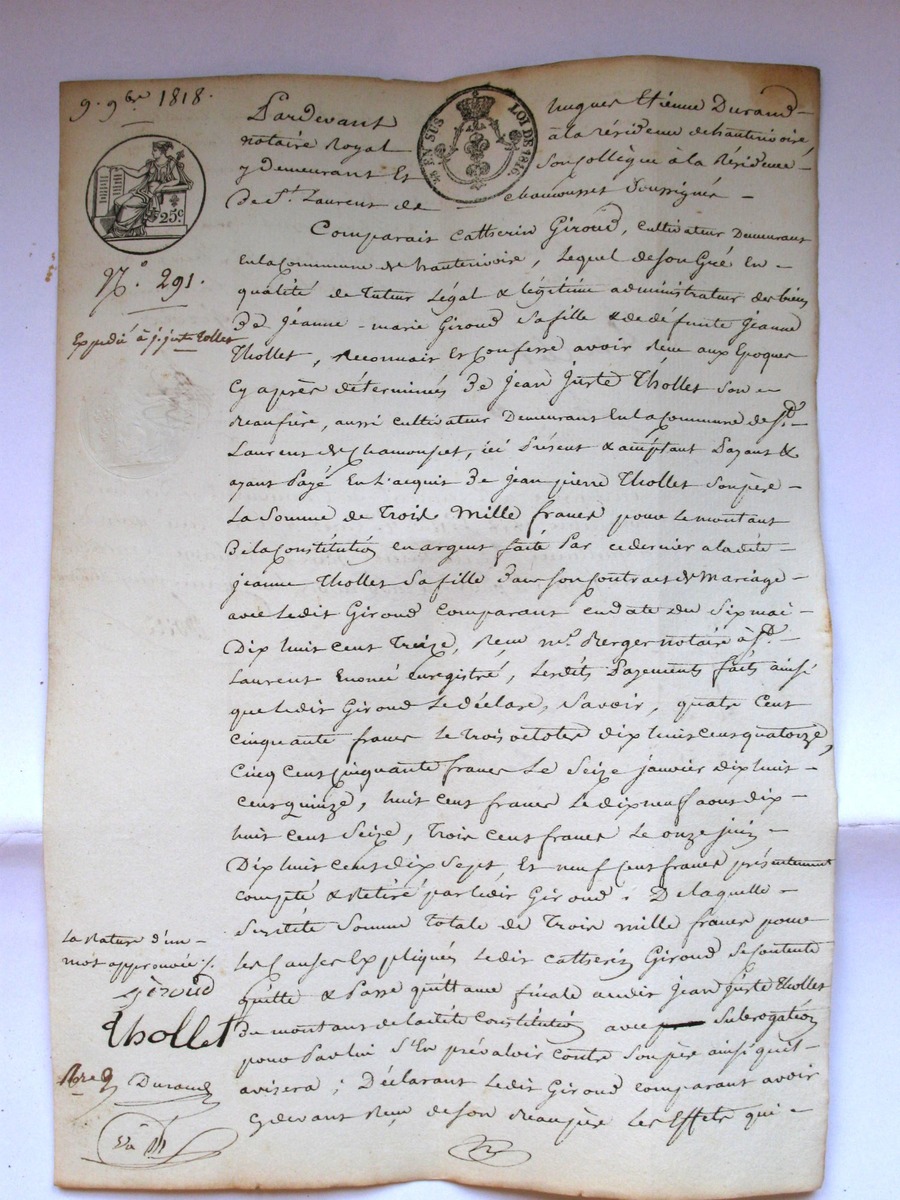 9. 9bre 1818.
Pardevant Hugues Etienne Durand
notaire Royal à la résidence de hauterivoire,
y demeurant Et Son Collègue à la Résidence
De St. Laurent de chamousset Soussignés
EN SUS LOI DE 1816.
25c
Comparait Catherin Giroud, cultivateur Demeurant
En la commune de hauterivoire, Lequel de son Gré en
N.o 291.
qualité de tuteur Légal & légitime administrateur des biens
De Jeanne-marie Giroud Sa fille & de défunte Jeanne
Expédié à j. juste tollet
Thollet, Reconnait Et Confesse avoir Reçu aux Epoques
Cy après déterminées De Jean Juste Thollet Son
Beaufrère, aussi cultivateur Demeurant En la Commune de St.
Laurent de Chamousset, ici Présent & acceptant Payant &
ayant Payé En L'acquit De jean pierre Thollet Son père
La Somme de Trois Mille francs pour Le montant
De la Constitution en argent faite Par ce dernier a ladite
jeanne Thollet Sa fille Dans Son Contract de Mariage
avec Ledit Giroud Comparant en date du Six mai
Dix huit cent Treize, Reçu me. Berger notaire à St.
Laurent Enoncé Enregistré, Lesdits Payements faits ainsi
que Ledit Giroud Le déclare, Savoir, quatre Cent
cinquante francs Le Trois octobre dix huit cent quatorze,
Cinq cent Cinquante francs Le Seize janvier dix huit
cent quinze, huit Cent francs Le dix neuf aout dix
huit cent Seize, Trois Cent francs Le onze juin
Dix huit cent dix Sept Et neuf Cent francs présentement
Compté & Retiré par Ledit Giroud; De laquelle
Susdite Somme Totale de Trois mille francs pour
Les Causes Expliquées Ledit Catherin Giroud Se Contente
quitte & Passe quittance finale audit Jean Juste Thollet
Du montant de ladite Constitution avec Subrogation
pour Par lui S'En prévaloir Contre Son père ainsi qu'il
avisera; Déclarant Ledit Giroud Comparant avoir
Cy devant Reçu de Son Beaupère Les Effets qui
La Rature d'un
mot approuvée
Giroud
Thollet
Durand